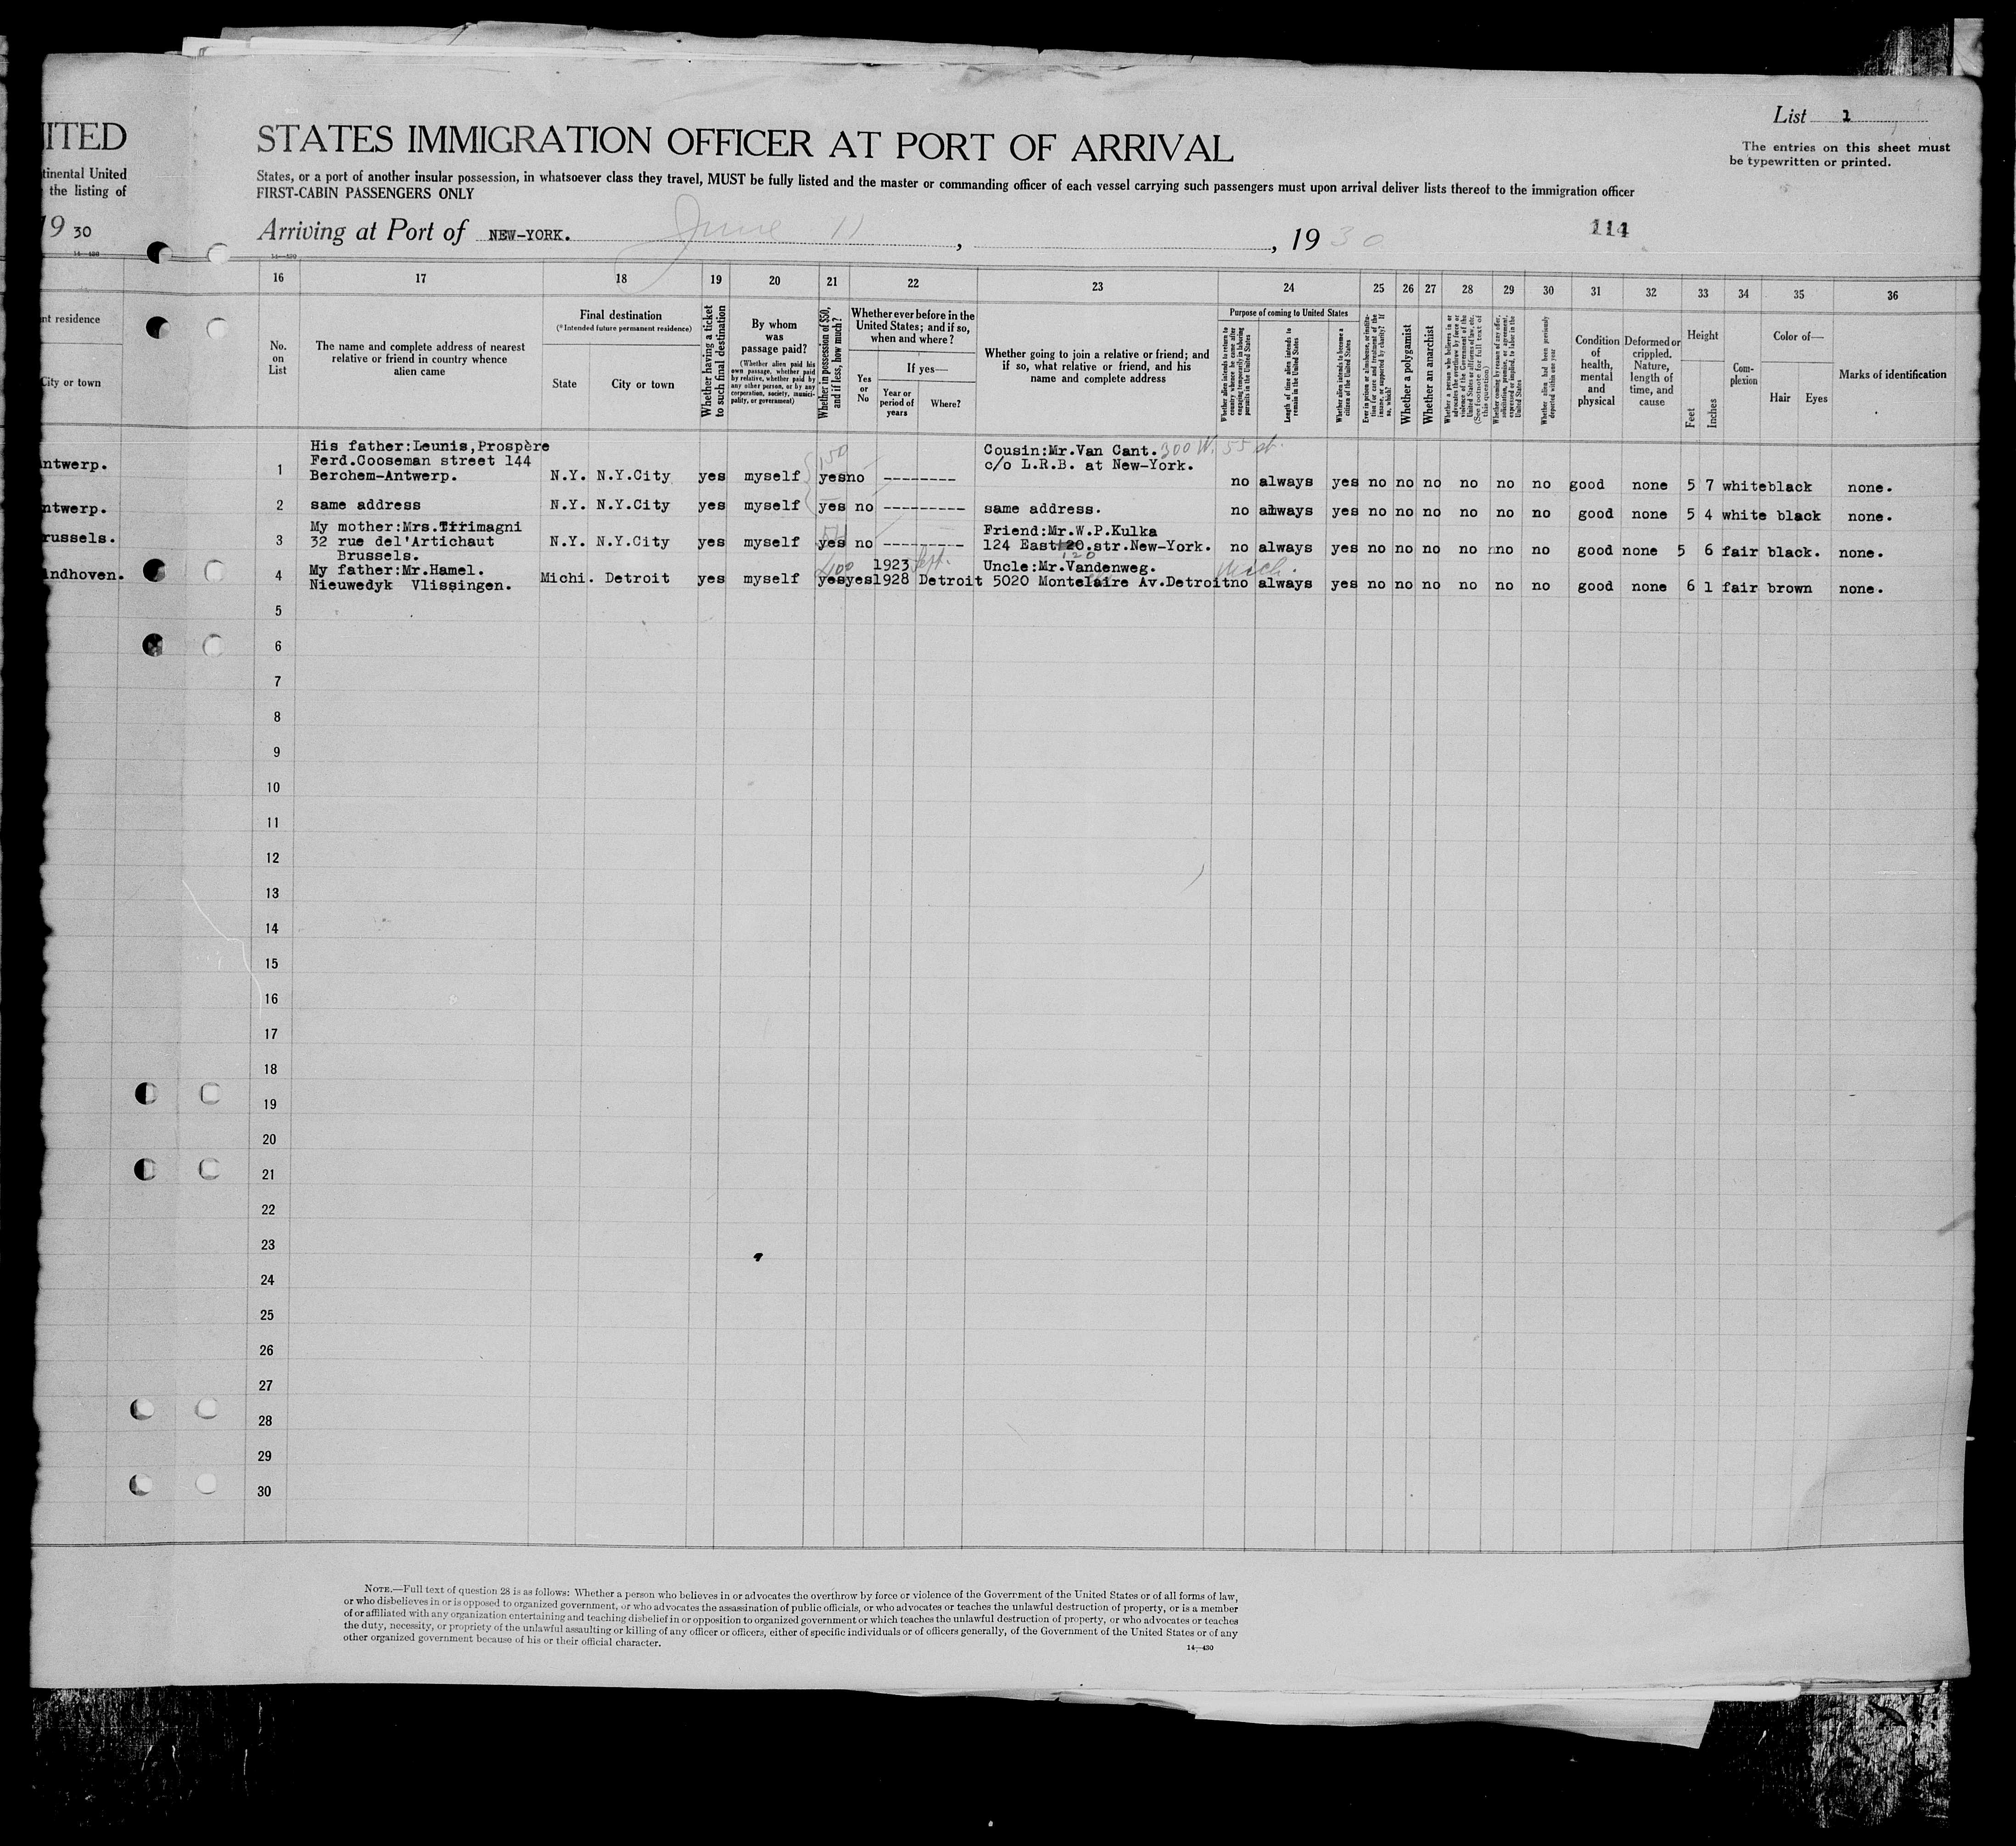 List 1
The entries on this sheet must
be typewritten or printed.
ITED
STATES IMMIGRATION OFFICER AT PORT OF ARRIVAL
tinental United
the listing of
States, or a port of another insular possession, in whatsoever class they travel, MUST be fully listed and the master or commanding officer of each vessel carrying such passengers must upon arrival deliver lists thereof to the immigration officer
FIRST-CABIN PASSENGERS ONLY
19 30
Arriving at Port of NEW-YORK. June 11, , 1930
114
14—430
14—430
16 17 18 19 20 21 22 23 24 25 26 27 28 29 30 31 32 33 34 35 36
nt residence
City or town
No.
on
List
The name and complete address of nearest
relative or friend in country whence
alien came
Final destination
(*Intended future permanent residence)
State
City or town
Whether having a ticket
to such final destination
By whom
was
passage paid?
(Whether alien paid his
own passage, whether paid
by relative, whether paid by
any other person, or by any
corporation, society, munici-
pality, or government)
Whether in possession of $50,
and if less, how much?
Whether ever before in the
United States; and if so,
when and where?
Yes
or
No
If yes—
Year or
period of
years
Where?
Whether going to join a relative or friend; and
if so, what relative or friend, and his
name and complete address
Purpose of coming to United States
Whether alien intends to return to
country whence he came after
engaging temporarily in laboring
pursuits in the United States
Length of time alien intends to
remain in the United States
Whether alien intends to become a
citizen of the United States
Ever in prison or almshouse, or institu-
tion for care and treatment of the
insane, or supported by charity? If
so, which?
Whether a polygamist
Whether an anarchist
Whether a person who believes in or
advocates the overthrow by force or
violence of the Government of the
United States or all forms of law, etc.
(See footnote for full text of
this question)
Whether coming by reason of any offer,
solicitation, promise, or agreement,
expressed or implied, to labor in the
United States
Whether alien had been previously
deported within one year
Condition
of
health,
mental
and
physical
Deformed or
crippled.
Nature,
length of
time, and
cause
Height
Feet
Inches
Com-
plexion
Color of—
Hair Eyes
Marks of identification
ntwerp.
1 His father:Leunis,Prospère
Ferd.Cooseman street 144
Berchem-Antwerp. N.Y. N.Y.City yes myself 150 yes no --------
Cousin:Mr.Van Cant. 300 W. 55 st.
c/o L.R.B. at New-York.
no always yes no no no no no no good none 5 7 white black none.
ntwerp.
2 same address N.Y. N.Y.City yes myself yes no --------- same address. no always yes no no no no no no good none 5 4 white black none.
russels.
3 My mother:Mrs.Trimagni
32 rue del'Artichaut
Brussels. N.Y. N.Y.City yes myself yes no ---------
Friend:Mr.W.P.Kulka
124 East 120.str.New-York.
120
no always yes no no no no no no good none 5 6 fair black. none.
indhoven.
4 My father:Mr.Hamel.
Nieuwedyk Vlissingen. Michi. Detroit yes myself 400 yes yes 1923 Sept.
1928 Detroit
Uncle:Mr.Vandenweg.
5020 Montelaire Av.Detroit Mich.
no always yes no no no no no no good none 6 1 fair brown none.
5
6
7
8
9
10
11
12
13
14
15
16
17
18
19
20
21
22
23
24
25
26
27
28
29
30
NOTE.—Full text of question 28 is as follows: Whether a person who believes in or advocates the overthrow by force or violence of the Government of the United States or of all forms of law,
or who disbelieves in or is opposed to organized government, or who advocates the assassination of public officials, or who advocates or teaches the unlawful destruction of property, or is a member
of or affiliated with any organization entertaining and teaching disbelief in or opposition to organized government or which teaches the unlawful destruction of property, or who advocates or teaches
the duty, necessity, or propriety of the unlawful assaulting or killing of any officer or officers, either of specific individuals or of officers generally, of the Government of the United States or of any
other organized government because of his or their official character.
14—430